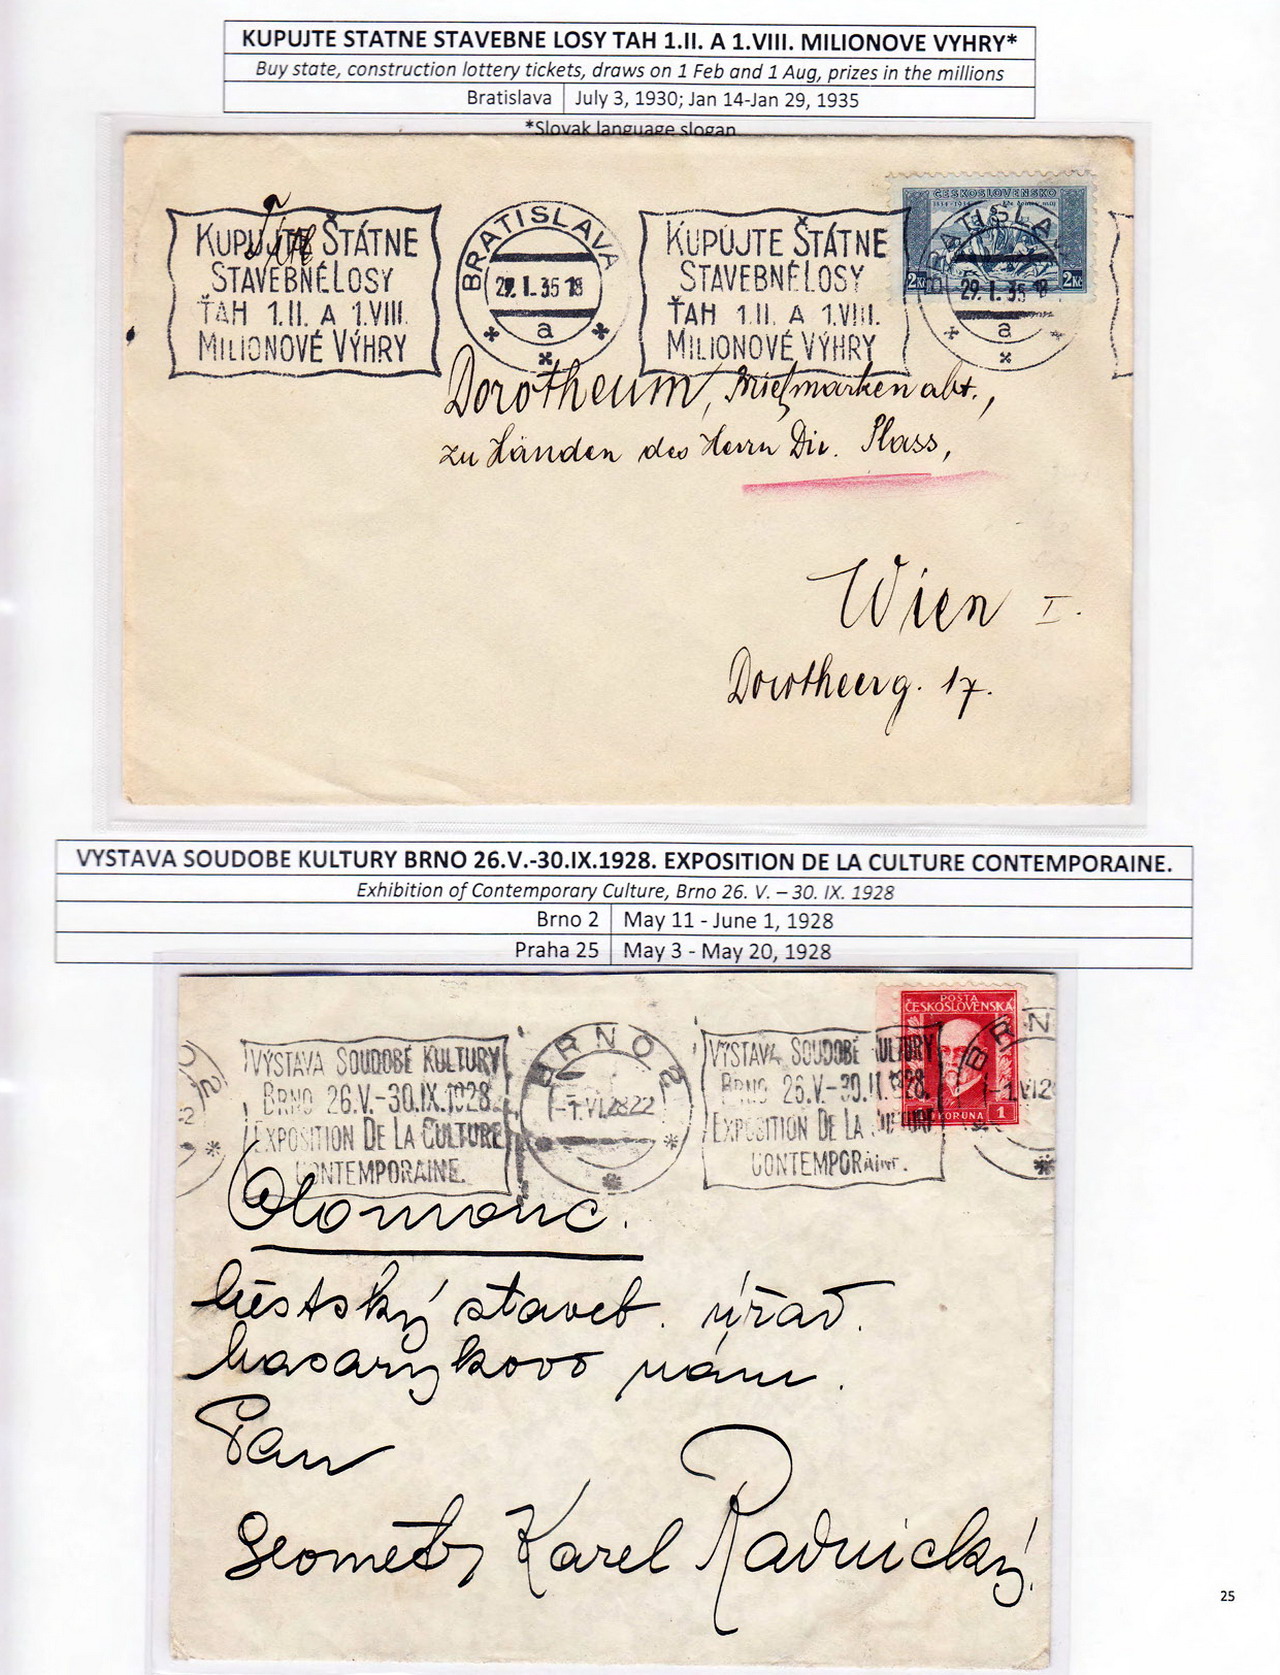 KUPUJTE STATNE STAVEBNE LOSY TAH 1.II. A 1.VIII. MILIONOVE VYHRY*
Buy state, construction lottery tickets, draws on 1 Feb and 1 Aug, prizes in the millions
Bratislava July 3, 1930; Jan 14-Jan 29, 1935
*Slovak language slogan
ČESKOSLOVENSKO
2Kč 2Kč
KUPUJTE ŠTÁTNE
STAVEBNÉ LOSY
ŤAH 1.II. A 1.VIII.
MILIONOVÉ VÝHRY
BRATISLAVA
29.I.35 18
a
KUPUJTE ŠTÁTNE
STAVEBNÉ LOSY
ŤAH 1.II. A 1.VIII.
MILIONOVÉ VÝHRY
BRATISLAVA
29.I.35 18
a
Dorotheum, Briefmarkenabt.,
zu Händen des Herrn Dir. Plass,
Wien I.
Dorotheerg. 17.
VYSTAVA SOUDOBE KULTURY BRNO 26.V.-30.IX.1928. EXPOSITION DE LA CULTURE CONTEMPORAINE.
Exhibition of Contemporary Culture, Brno 26. V. – 30. IX. 1928
Brno 2 May 11 - June 1, 1928
Praha 25 May 3 - May 20, 1928
POŠTA
ČESKOSLOVENSKÁ
KORUNA 1
VÝSTAVA SOUDOBÉ KULTURY
BRNO 26.V.-30.IX.1928.
EXPOSITION DE LA CULTURE
CONTEMPORAINE.
BRNO 2
-1.VI.28 22
VÝSTAVA SOUDOBÉ KULTURY
BRNO 26.V.-30.IX.1928.
EXPOSITION DE LA CULTURE
CONTEMPORAINE.
BRN
-1.VI.2
Olomouc.
Městský staveb. úřad.
Masarykovo nám.
Pan
Geometr Karel Radnický
25